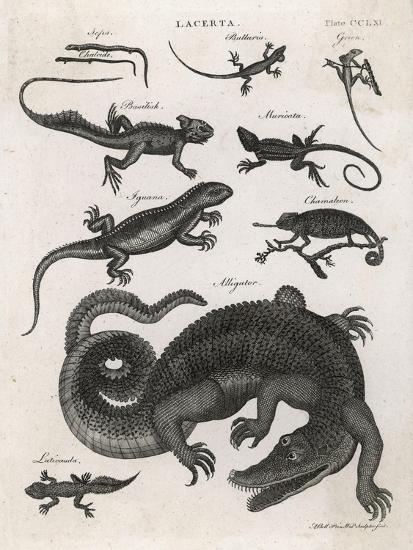 LACERTA.
Plate CCLXI.
Seps.
Chalcide.
Bullaris.
Green.
Basilisk.
Muricata.
Iguana.
Chamæleon.
Alligator.
Laticauda.
A. Bell Prin. Wal. Sculptor fecit.